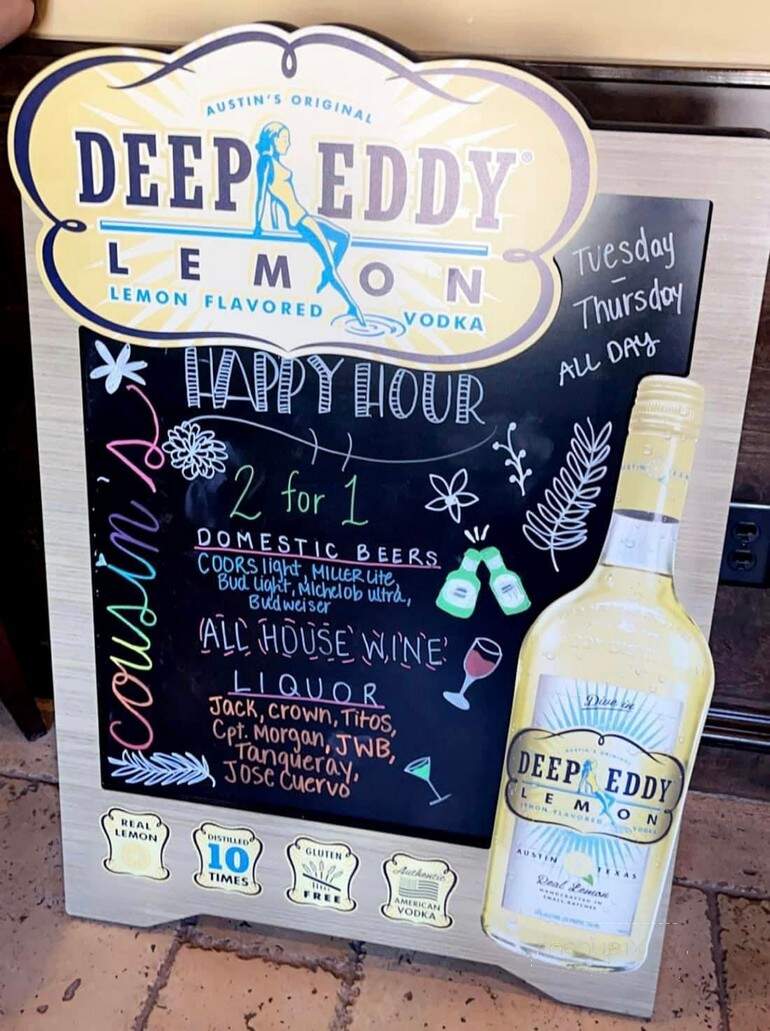 AUSTIN'S ORIGINAL
DEEP EDDY®
LEMON
LEMON FLAVORED VODKA
Tuesday
-
Thursday
ALL DAY
HAPPY HOUR
cousin's
2 for 1
DOMESTIC BEERS
COORS light, MILLER Lite,
Bud Light, Michelob ultra,
Budweiser
ALL HOUSE WINE
LIQUOR
Jack, crown, Titos,
Cpt. Morgan, JWB,
Tanqueray,
Jose Cuervo
Dive in
DEEP EDDY
LEMON
LEMON FLAVORED VODKA
AUSTIN TEXAS
Real Lemon
HANDCRAFTED IN
SMALL BATCHES
REAL
LEMON
DISTILLED
10
TIMES
GLUTEN
FREE
Authentic
AMERICAN
VODKA